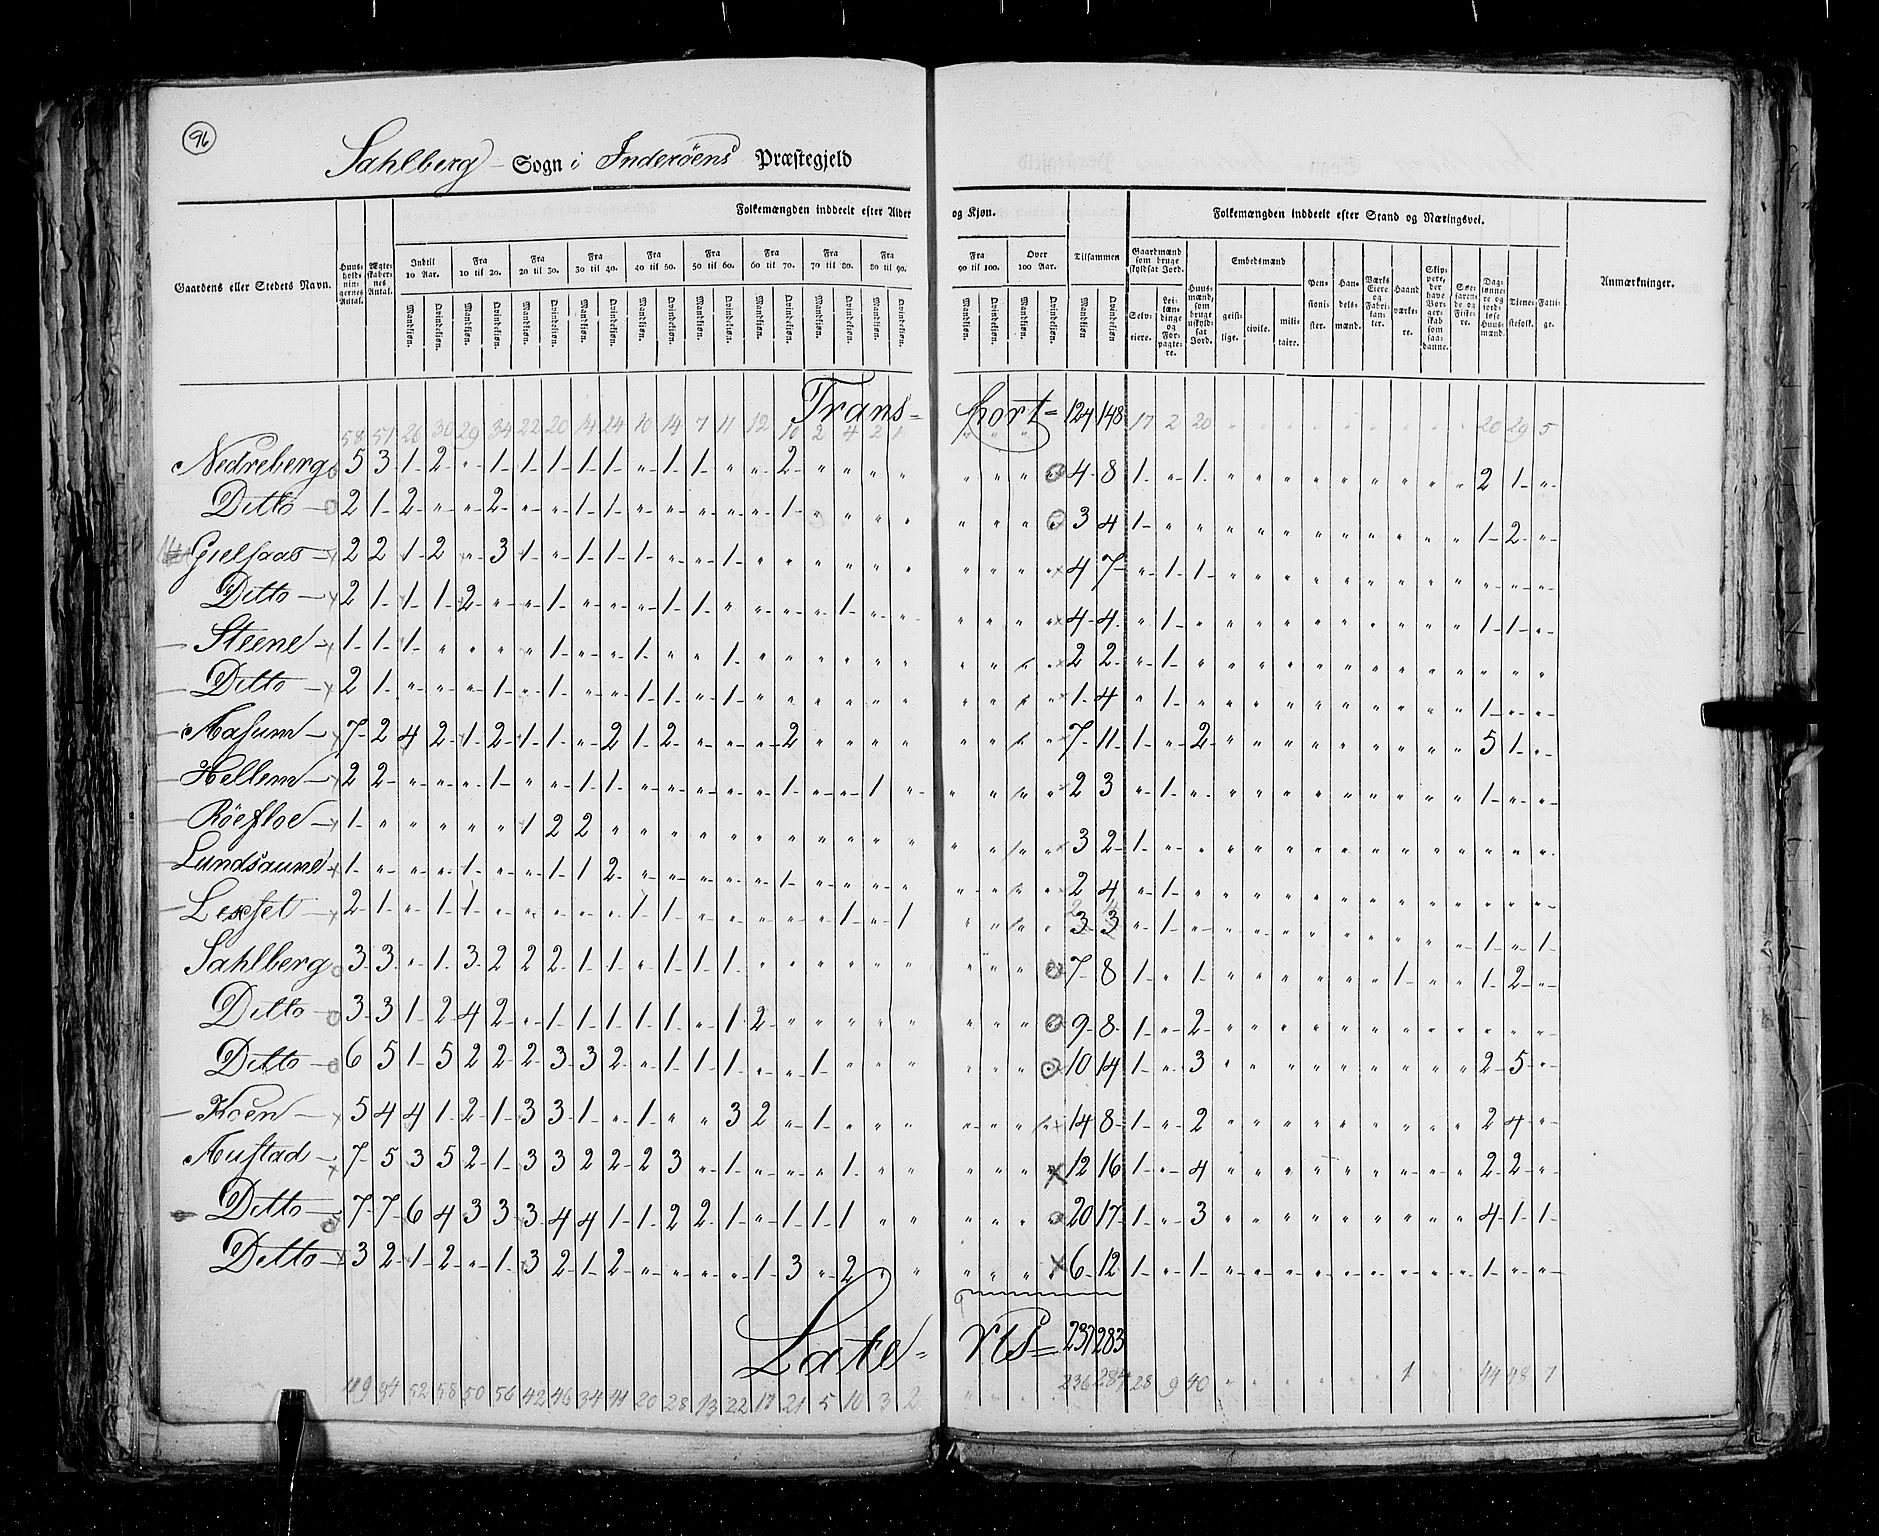 96
Sahlberg Sogn i Inderöens Præstegjeld
Folkemængden inddeelt efter Alder og Kjøn. Folkemængden inddeelt efter Stand og Næringsvei.
Gaardens eller Stedets Navn. Huusholdningernes Antal. Ægteskabernes Antal. Indtil 10 Aar. Fra 10 til 20. Fra 20 til 30. Fra 30 til 40. Fra 40 til 50. Fra 50 til 60. Fra 60 til 70. Fra 70 til 80. Fra 80 til 90. Fra 90 til 100. Over 100 Aar. Tilsammen Gaardmænd som bruge skyldsat Jord. Huusmænd, som bruge uskyldsat Jord. Embedsmænd Pensionister. Handelsmænd. Værks Eiere og Fabrikanter. Haandværkere. Skippere, der have Borgerskab som saadanne. Søefarende og Fiskere. Daglønnere og jordløse Huusmænd. Tjenestefolk. Fattige. Anmærkninger.
Mandkjøn. Qvindekjøn. Mandkjøn. Qvindekjøn. Mandkjøn. Qvindekjøn. Mandkjøn. Qvindekjøn. Mandkjøn. Qvindekjøn. Mandkjøn. Qvindekjøn. Mandkjøn. Qvindekjøn. Mandkjøn. Qvindekjøn. Mandkjøn. Qvindekjøn. Mandkjøn. Qvindekjøn. Mandkjøn. Qvindekjøn. Mandkjøn. Qvindekjøn. Selveiere. Leilændinge og Forpagtere. geistlige. civile. militaire.
Trans= port= 124 148
58 51 26 30 29 34 22 20 14 24 10 14 7 11 12 10 2 4 2 1 17 2 20 20 29 5
Nedreberg 5 3 1 2 " 1 1 1 1 1 " 1 1 " " 2 " " " " " " " " 4 8 1 " 1 " " " " " " " " " 2 1 "
Ditto 2 1 2 " " 2 " " 1 1 " " " " " 1 " " " " " " " " 3 4 1 " " " " " " " " " " " 1 2 "
Gielsaas 2 2 1 2 " 3 1 " 1 1 1 " " 1 " " " " " " " " " " 4 7 " 1 1 " " " " " " " " " " " "
Ditto 2 1 1 1 2 " " 1 " " " 1 1 " " " " 1 " " " " " " 4 4 " 1 " " " " " " " " " " 1 1 "
Steene 1 1 1 " " " " 1 " " 1 " " 1 " " " " " " " " " " 2 2 " 1 " " " " " " " " " " " " "
Ditto 2 1 " " " 1 " 1 " " 1 1 " 1 " " " " " " " " " " 1 4 " 1 " " " " " " " " " " 1 " "
Aasum 7 2 4 2 1 2 1 1 " 2 1 2 " " " 2 " " " " " " " " 7 11 1 " 2 " " " " " " " " " 5 1 "
Hellem 2 2 " " " 1 " " 1 1 " " " " " 1 " " 1 " " " " " 2 3 " 1 " " " " " " " " " " 1 " "
Röefloe 1 " " " " " 1 2 2 " " " " " " " " " " " " " " " 3 2 1 " " " " " " " " " " " " " "
Lundsaune 1 " " " 1 " " 1 1 2 " " " " " 1 " " " " " " " " 2 4 " 1 " " " " " " " " " " " " "
Lexset 2 1 " 1 1 " " " " " 1 1 " " " " " 1 " 1 " " " " 3 3 " 1 " " " " " " " " " " 1 " 1
Sahlberg 3 3 " 1 3 2 2 2 1 1 " 1 1 1 " " " " " " " " " " 7 8 1 " 1 " " " " " " 1 " " 1 2 "
Ditto 3 3 1 2 4 2 " 1 1 1 1 1 " 1 2 " " " " " " " " " 9 8 1 " 2 " " " " " " " " " " " "
Ditto 6 5 1 5 2 2 2 3 3 2 " 1 1 1 " " 1 " " " " " " " 10 14 1 " 3 " " " " " " " " " 2 5 "
Koen 5 4 4 1 2 1 3 3 1 " 1 " " 3 2 " 1 " " " " " " " 14 8 1 " 2 " " " " " " " " " 2 4 "
Mustad 7 5 3 5 2 1 3 3 2 2 2 3 " 1 " " " 1 " " " " " " 12 16 1 " 4 " " " " " " " " " 2 2 "
Ditto 7 7 6 4 3 3 3 4 4 1 1 2 2 1 " 1 1 1 " " " " " " 20 17 1 " 3 " " " " " " " " " 4 1 1
Ditto 3 2 1 2 " 1 3 2 1 2 " " " " 1 3 " 2 " " " " " " 6 12 1 " 1 " " " " " " " " " 1 " "
Late= ris= 237 283
119 94 52 58 50 56 42 46 34 41 20 28 13 22 17 21 5 10 3 2 236 284 28 9 40 1 44 48 7